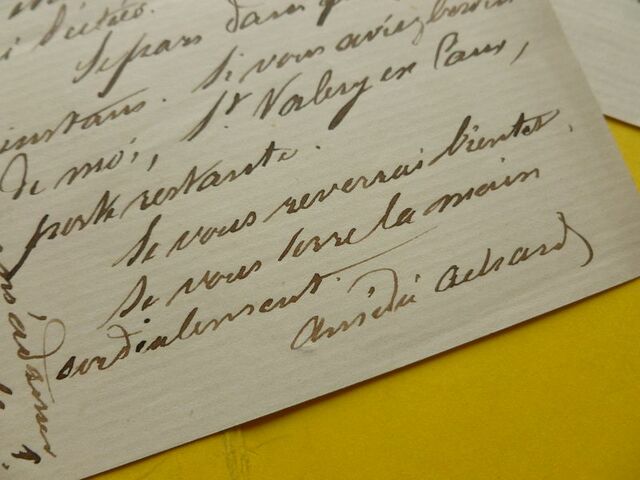 Je pars dans
instans. Si vous aviez besoin
de moi, St Valery en Caux,
poste restante.
Je vous reverrai bientot,
Je vous serre la main
cordialement.
Amédée Achard